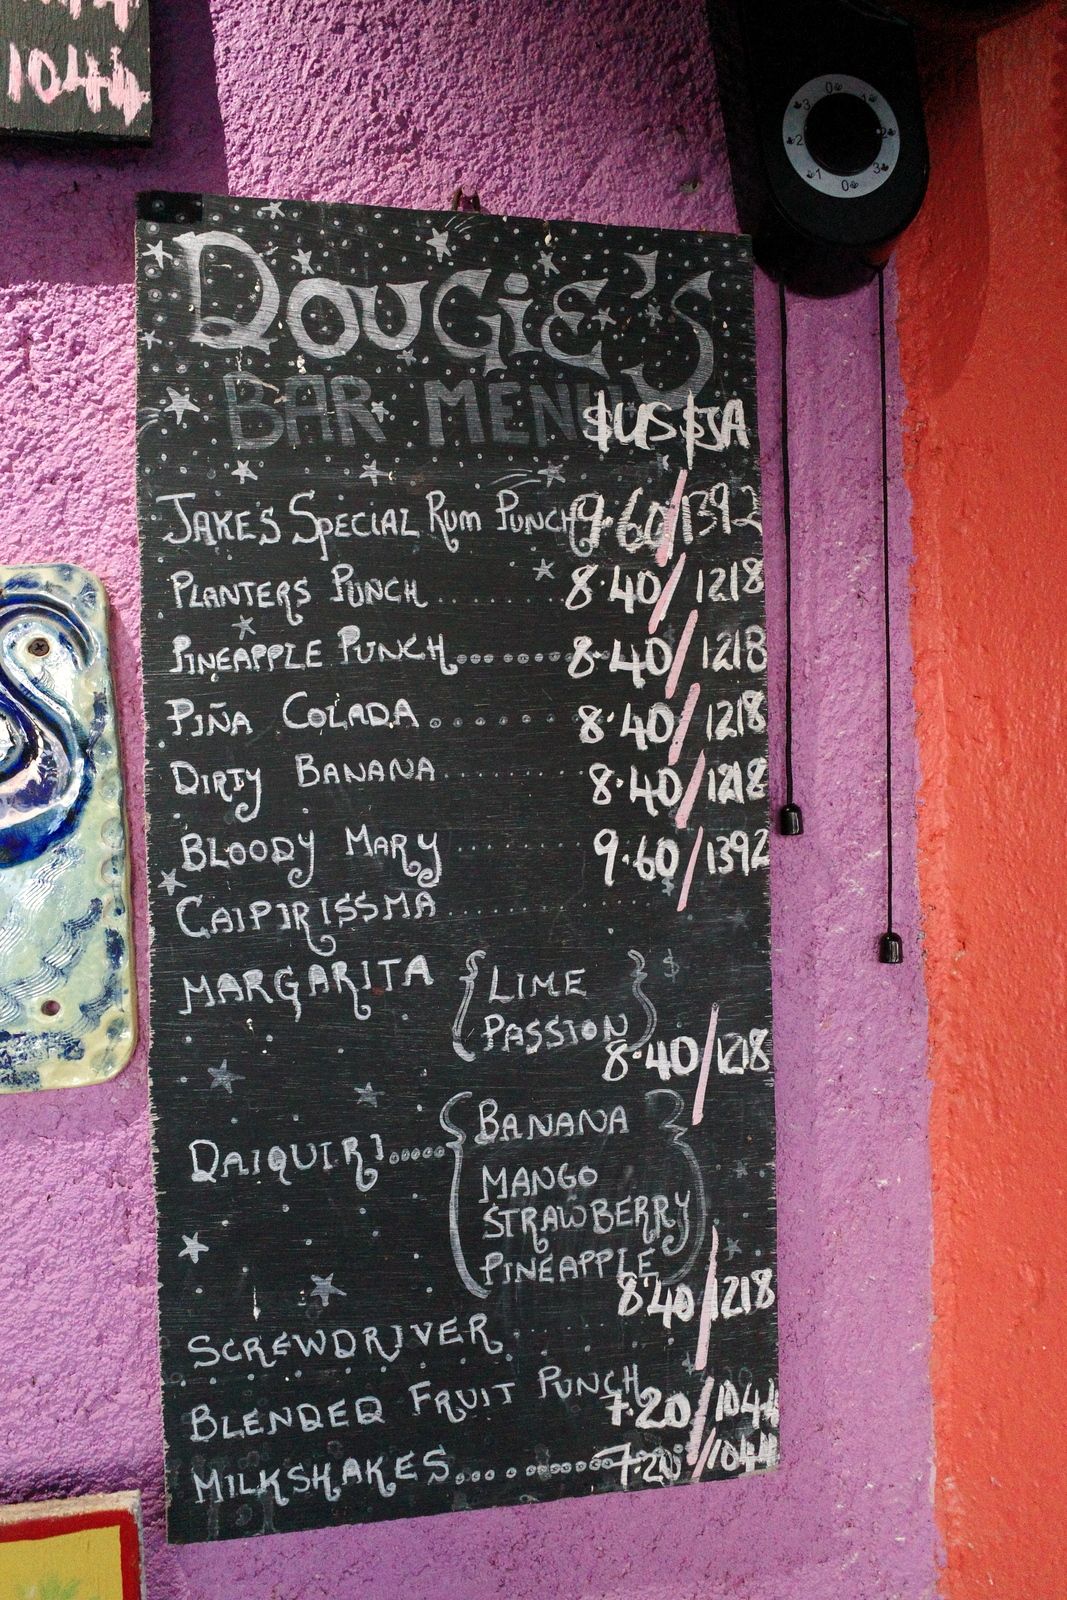 1044
DOUGIE'S
BAR MENU $US $JA
JAKE'S SPECIAL RUM PUNCH 9.60/1392
PLANTERS PUNCH ....... 8.40/1218
PINEAPPLE PUNCH ......... 8.40/1218
PIÑA COLADA ........ 8.40/1218
DIRTY BANANA ......... 8.40/1218
BLOODY MARY ........ 9.60/1392
CAIPIRISSMA ...........
MARGARITA { LIME } $
PASSION
8.40/1218
BANANA
DAIQUIRI ..... {
MANGO
STRAWBERRY
PINEAPPLE }
8.40/1218
SCREWDRIVER .......
BLENDED FRUIT PUNCH 7.20/1044
MILKSHAKES ......... 7.20/1044
0 1 2 3 0 1 2 3